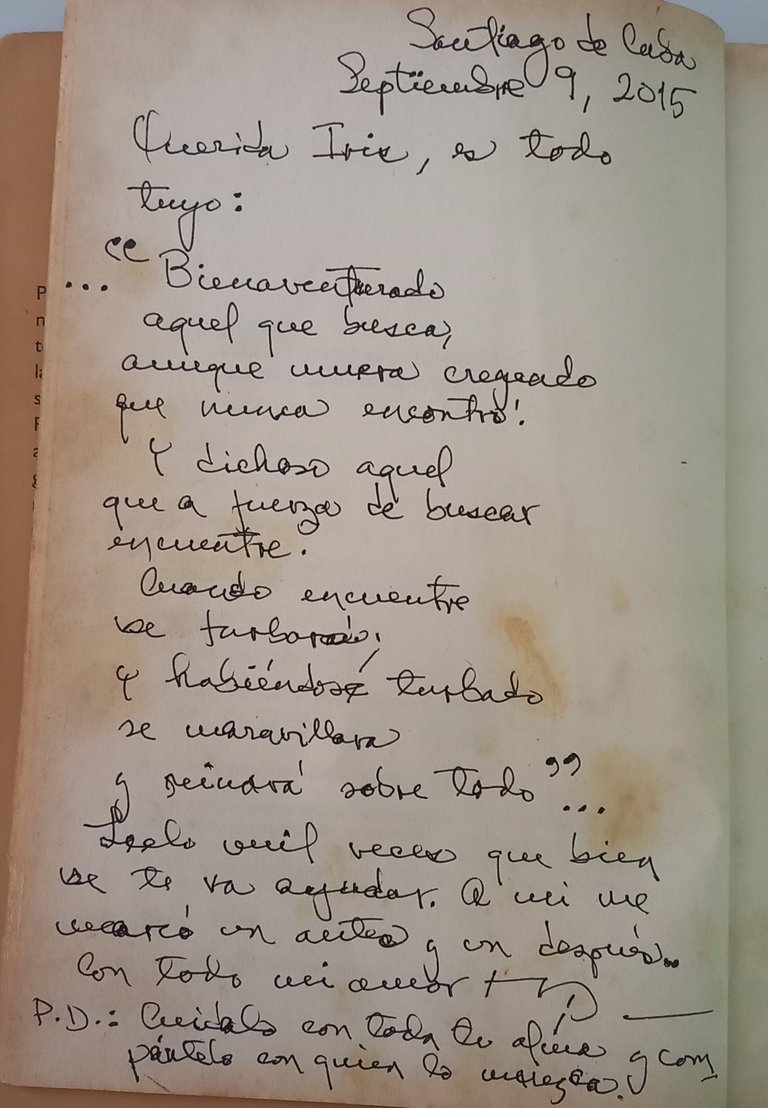 Santiago de Cuba
Septiembre 9, 2015
Querida Iris, es todo
tuyo:
... “Bienaventurado
aquel que busca,
aunque muera creyendo
que nunca encontró!
Y dichoso aquel
que a fuerza de buscar
encuentre.
Cuando encuentre
se turbará;
y habiéndose turbado
se maravillara
y reinará sobre todo”...
Leelo mil veces que bien
se te va ayudar. A mi me
marcó un antes y un después..
Con todo mi amor
P.D.: Cuidalo con toda tu alma y com
pártelo con quien lo merezca.